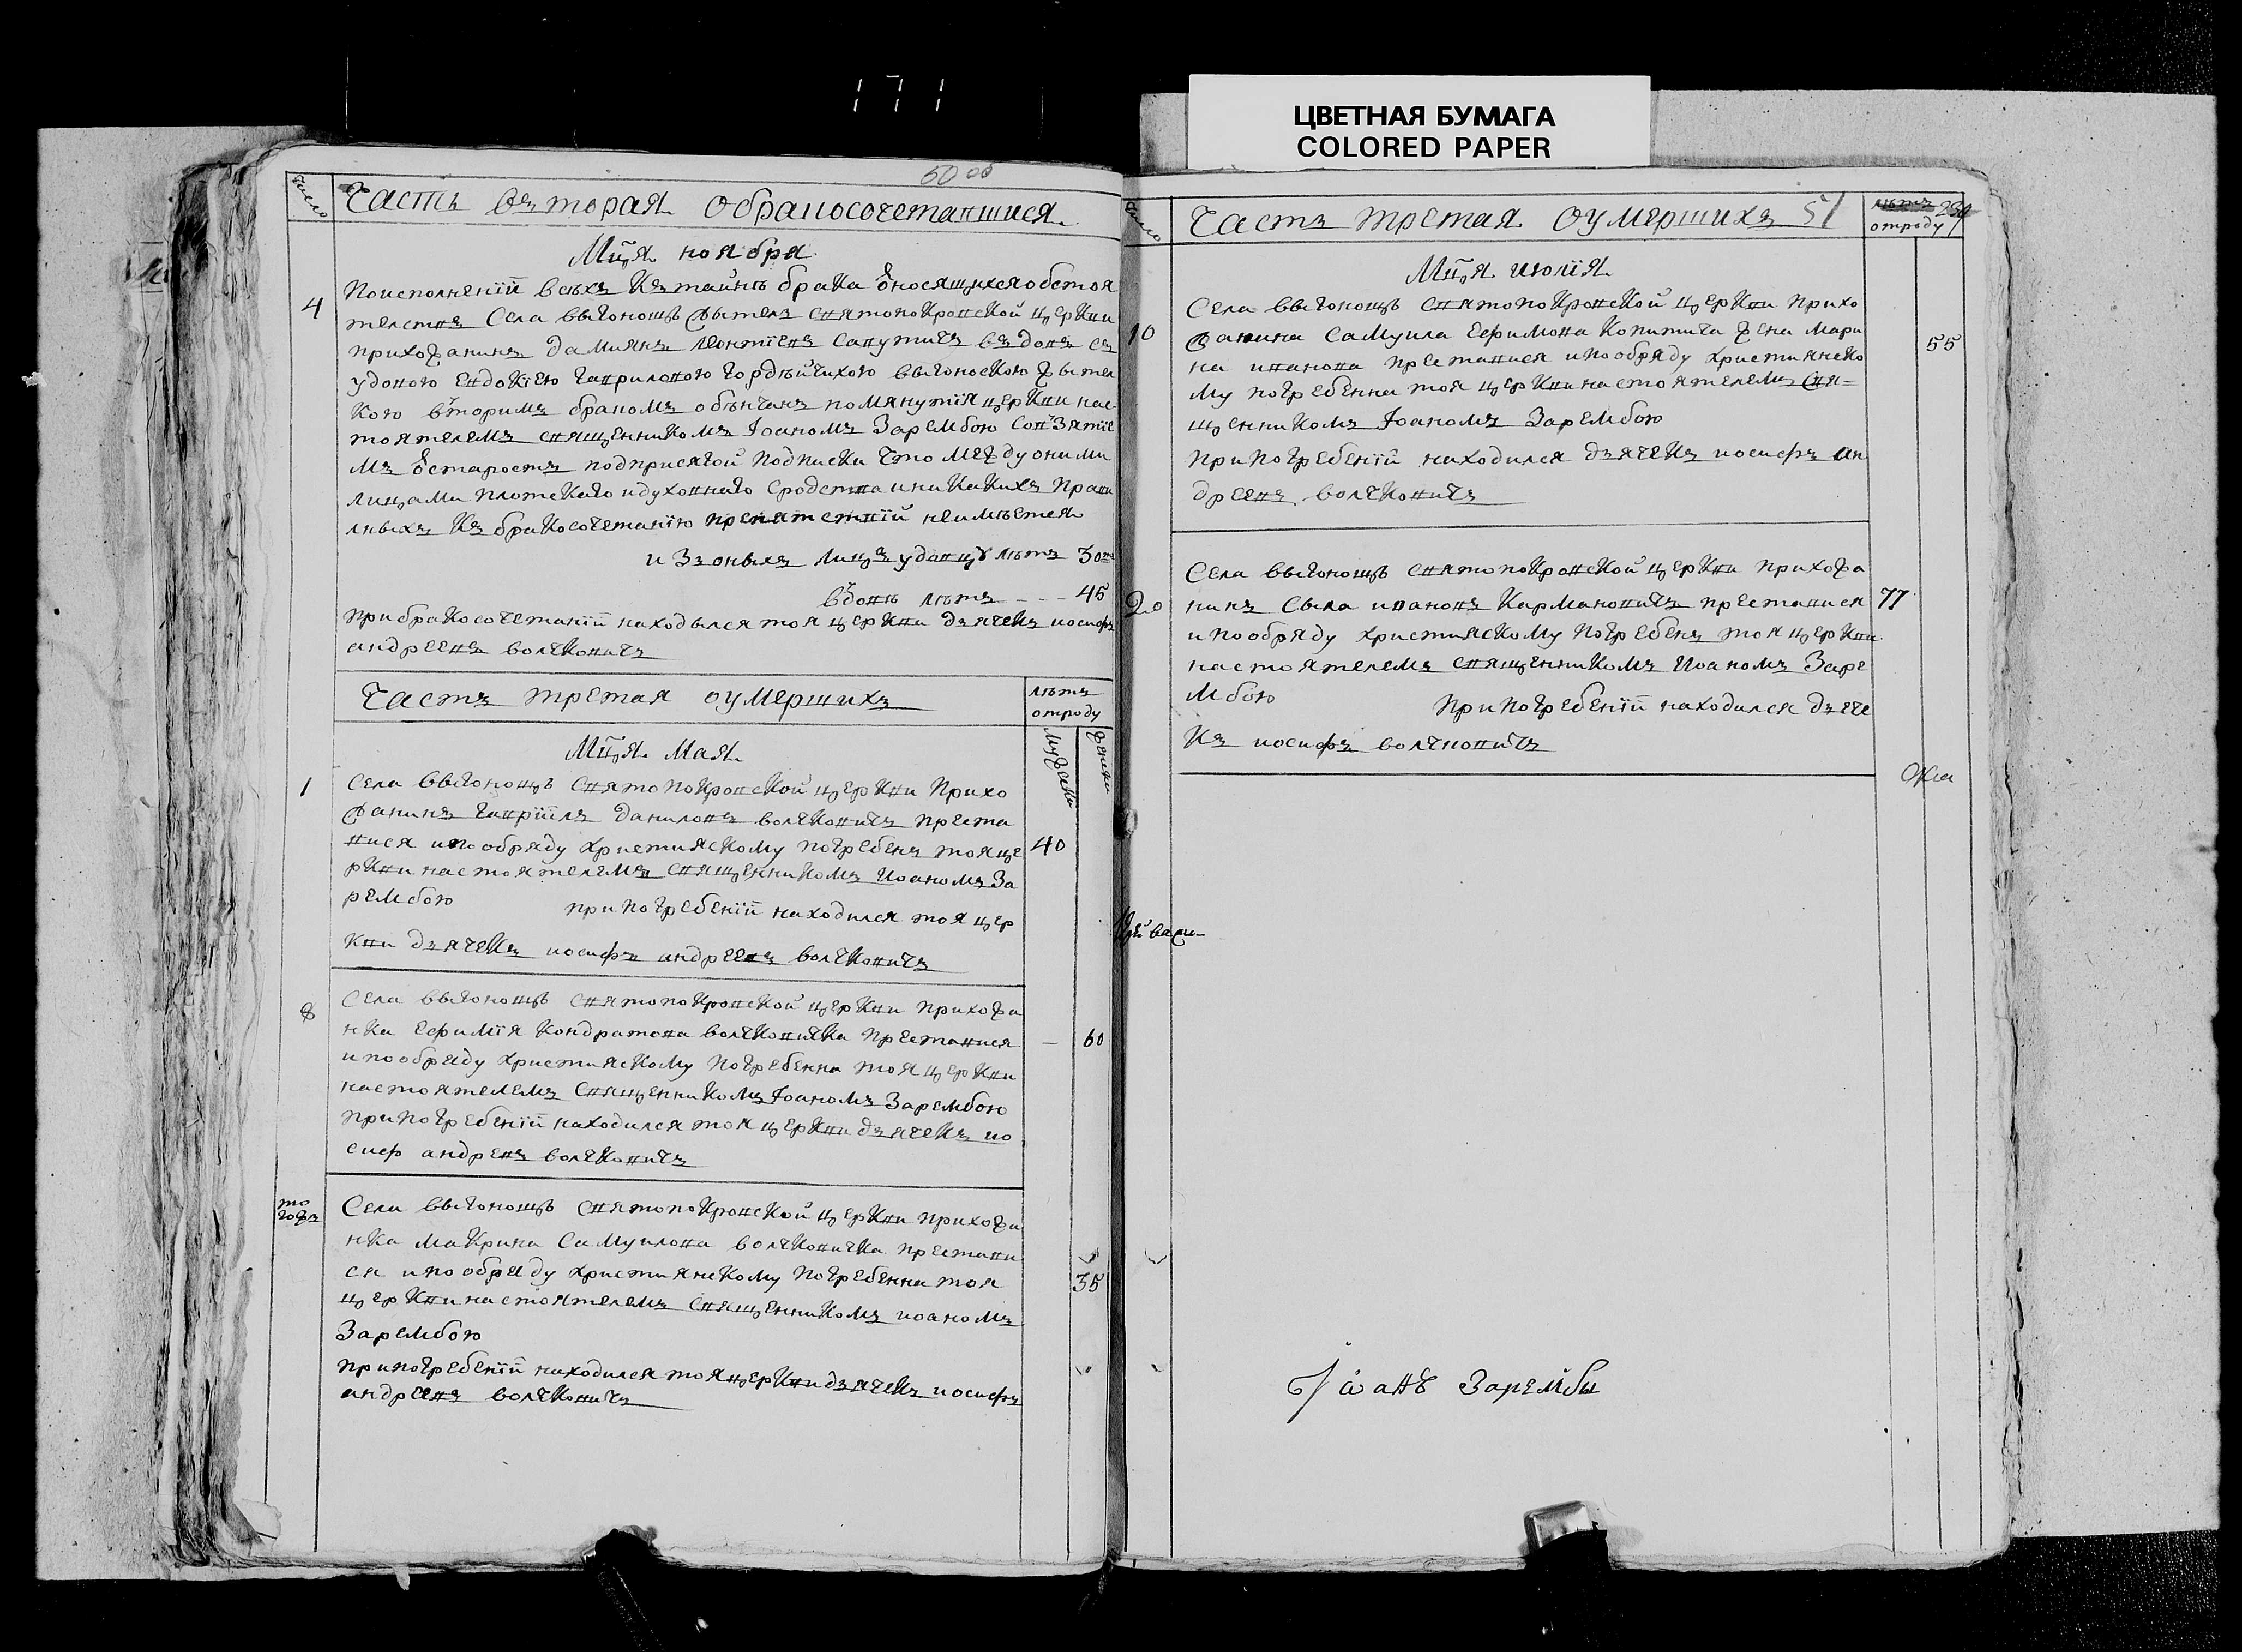 171
ЦВЕТНАЯ БУМАГА
COLORED PAPER
50 об
число
Часть въторая обракосочетавшися
Мц̃а ноября
4
Поисполненіи всѣхъ Къ тайнѣ брака Ѿносящихся обстоя
телствъ Села Выгонощъ Жытелъ святопокровской церкви
прихожанинъ Дамиянъ Леонтіевъ Сапутичъ въдовъ съ
удовою Евдокіею Гавриловою Гордѣйчихою выгоноскою жытел
кою вторимъ бракомъ обѣнчанъ помянутія церкви нас
тоятелемъ священникомъ Іоаномъ Зарембою Совзятіе
мъ Ѿстаростъ подприсягой подписки что между оними
лицами плотскаго идуховнаго сродства иникакихъ прави
лныхъ Къ бракосочетанію препятствій неимѣется
и Зъ оныхъ лицъ удовцу лѣтъ 30
вдовѣ лѣтъ - - - 45
при бракосочетаніи находылся тоя церкви дъячекъ иосифъ
андреевъ волчковичъ
Частъ третая оумершихъ
лѣтъ
отроду
Мц̃а Мая
мужеска
женска
1
Села Выгонощъ святопокровской церкви прихо
жанинъ Гавріилъ Даниловъ волчковичъ преста
вися ипообряду християскому погребенъ тояце
ркви настоятелемъ священникомъ Иоаномъ За
рембою
припогребеніи находился тоя цер
кви дъячекъ иосифъ андреевъ волчковичъ
40
8
Села Выгонощъ святопокровской церкви прихожа
нка Ефимія Кондратова волчковичка преставися
ипообряду християскому погребенна тоя церкви
настоятелемъ священникомъ Іоаномъ Зарембою
припогребеніи находился тоя церкви дъячекъ ио
сиф андревъ волчковичъ
— 60
то
гожъ
Села Выгонощъ святопокровской церкви прихожа
нка Макрина Самуилова волчковичка престави
ся ипообряду християнскому погребенна тоя
церкви настоятелемъ священникомъ иоаномъ
Зарембою
припогребеніи находился тоя церкви дъячекъ иосифъ
андреевъ волчковичъ
35
число
Частъ третая оумершихъ 51
лѣтъ
отроду
Мц̃а июлія
10
Села Выгонощъ святопокровской церкви прихо
жанина Самуила Ефимова Копитича жена Мари
на иванова преставися ипообряду християнско
му погребенна тоя церкви настоятелемъ свя=
щенникомъ Іоаномъ Зарембою
припогребеніи находился дъячекъ иосифъ ан
дреевъ волчковичъ
55
20
Села Выгонощъ святопокровской церкви прихожа
нинъ Сыла ивановъ Кармановичъ преставися
ипообряду християскому погребенъ тоя церкви
настоятелемъ священникомъ Иоаномъ Заре
мбою припогребеніи находился дъяче
къ иосифъ волчковичъ
77
Іоанъ Зарембы